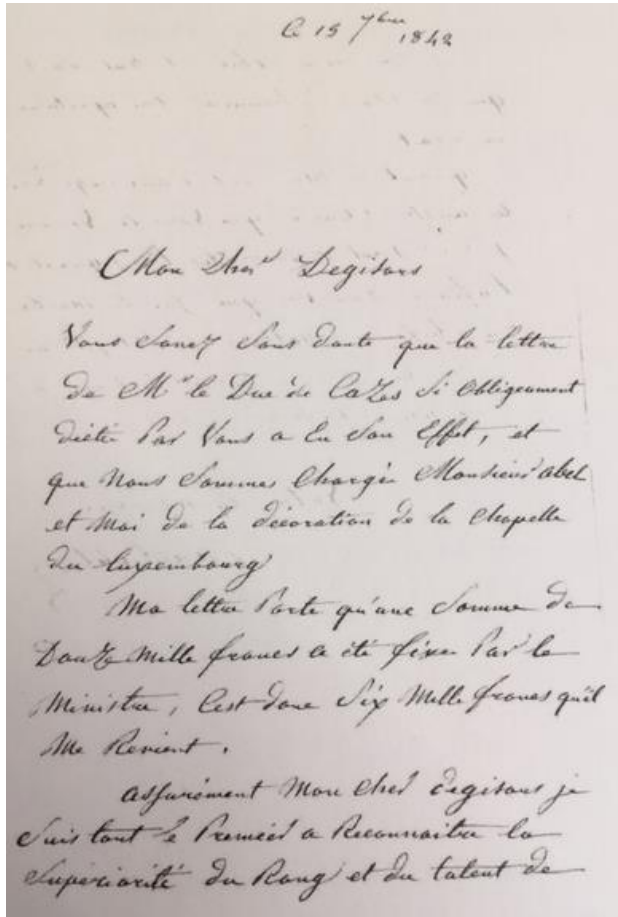 le 15 7bre 1842
Mon cher Degisors
Vous savez sans doute que la lettre
de Mr le Duc de CaZes si obligeament
dictée Par Vous a Eu son Effet, et
que Nous sommes chargés Monsieur abel
et moi de la décoration de la chapelle
du luxembourg
Ma lettre Porte qu'une somme de
DouZe mille francs a été fixée Par le
Ministre, c'est donc six Mille francs qu'il
Me Revient.
assurément Mon cher degisors je
suis tout le Premier a Reconnaitre la
supériorité du Rang et du talent de